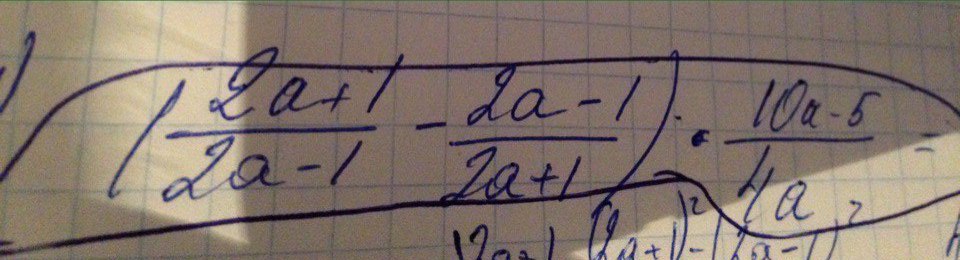 ( (2a+1)/(2a-1) - (2a-1)/(2a+1) ) · (10a-5)/(4a) =
(2a+1)² - (2a-1)²